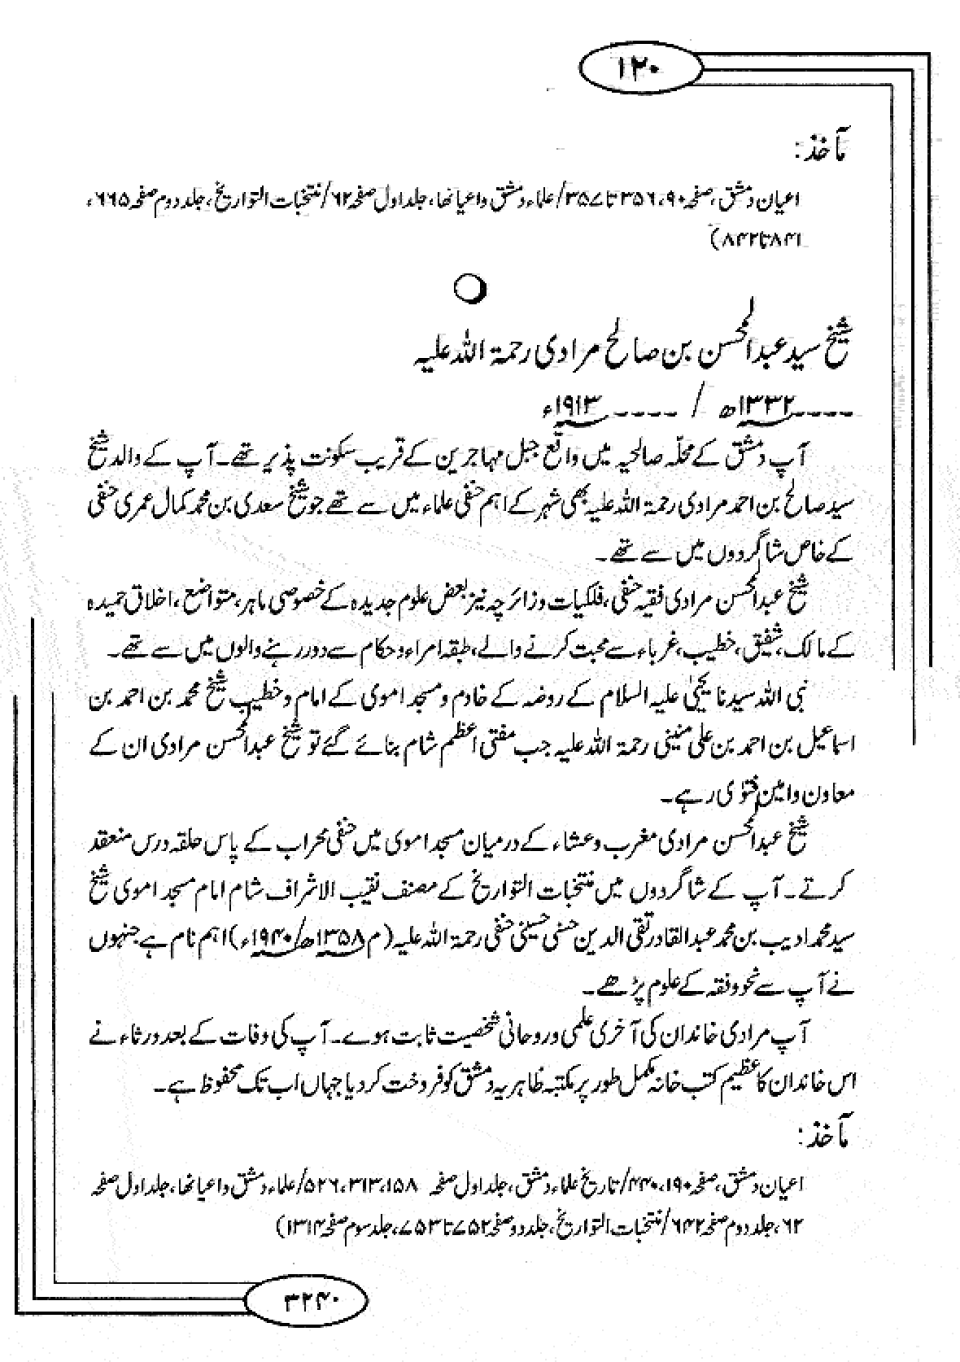 ۱۲۰
مآخذ:
اعیان دمشق، صفحہ ۹۰، ۳۵۶ تا ۳۵۷/علماء دمشق واعیانھا، جلد اول صفحہ ۶۲/منتخبات التواریخ، جلد دوم صفحہ ۶۶۵،
۸۴۱ تا ۸۴۲)
شیخ سید عبدالمحسن بن صالح مرادی رحمۃ اللہ علیہ
----۱۳۳۲ھ / ----۱۹۱۳ء
آپ دمشق کے محلّہ صالحیہ میں واقع جبل مہاجرین کے قریب سکونت پذیر تھے۔ آپ کے والد شیخ
سید صالح بن احمد مرادی رحمۃ اللہ علیہ بھی شہر کے اہم حنفی علماء میں سے تھے جو شیخ سعدی بن محمد کمال عمری حنفی
کے خاص شاگردوں میں سے تھے۔
شیخ عبدالمحسن مرادی فقیہ حنفی، فلکیات وزائرچہ نیز بعض علوم جدیدہ کے خصوصی ماہر، متواضع، اخلاق حمیدہ
کے مالک، شفیق، خطیب، غرباء سے محبت کرنے والے، طبقہ امراء وحکام سے دور رہنے والوں میں سے تھے۔
نبی اللہ سیدنا یحییٰ علیہ السلام کے روضہ کے خادم و مسجد اموی کے امام و خطیب شیخ محمد بن احمد بن
اسماعیل بن احمد بن علی منینی رحمۃ اللہ علیہ جب مفتی اعظم شام بنائے گئے تو شیخ عبدالمحسن مرادی ان کے
معاون وامین فتویٰ رہے۔
شیخ عبدالمحسن مرادی مغرب وعشاء کے درمیان مسجد اموی میں حنفی محراب کے پاس حلقہ درس منعقد
کرتے۔ آپ کے شاگردوں میں منتخبات التواریخ کے مصنف نقیب الاشراف شام امام مسجد اموی شیخ
سید محمد ادیب بن محمد عبدالقادر تقی الدین حسنی حسینی حنفی رحمۃ اللہ علیہ (م ۱۳۵۸ھ/۱۹۴۰ء) اہم نام ہے جنہوں
نے آپ سے نحو و فقہ کے علوم پڑھے۔
آپ مرادی خاندان کی آخری علمی وروحانی شخصیت ثابت ہوے۔ آپ کی وفات کے بعد ورثاء نے
اس خاندان کا عظیم کتب خانہ مکمل طور پر مکتبہ ظاہریہ دمشق کو فروخت کر دیا جہاں اب تک محفوظ ہے۔
مآخذ:
اعیان دمشق، صفحہ ۱۹۰، ۴۴۰/تاریخ علماء دمشق، جلد اول صفحہ ۱۵۸، ۳۱۳، ۵۲۶/علماء دمشق واعیانھا، جلد اول صفحہ
۶۲، جلد دوم صفحہ ۶۴۲/منتخبات التواریخ، جلد دو صفحہ ۷۵۲ تا ۷۵۳، جلد سوم صفحہ ۱۳۱۴)
۳۲۴۰